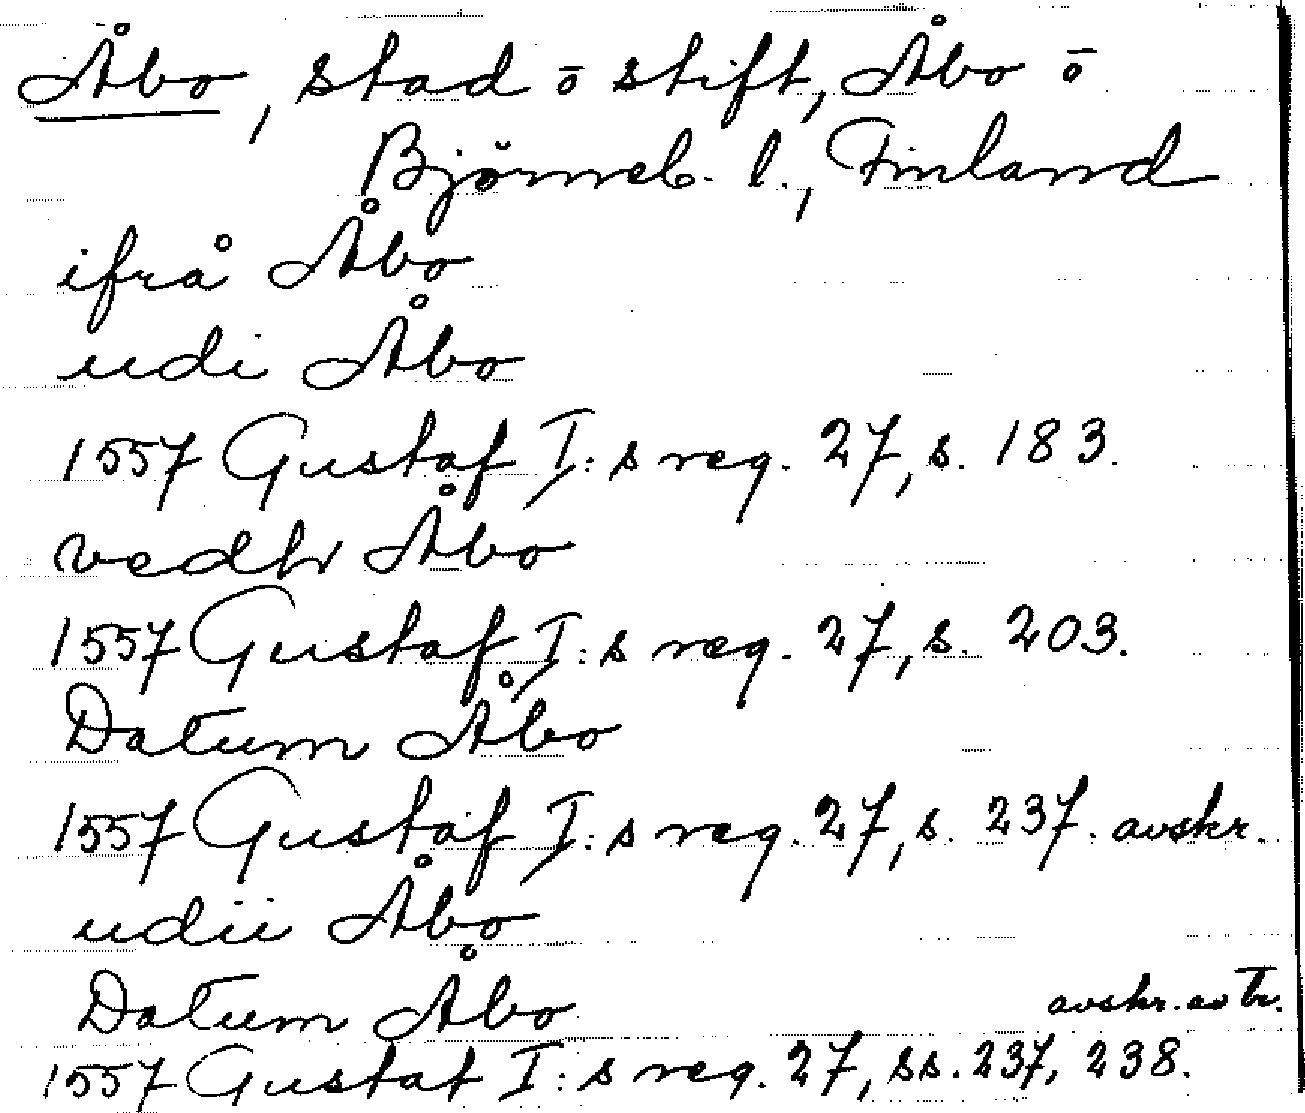 Åbo, stad ō stift, Åbo ō
Björneb. l., Finland
ifrå Åbo
udi Åbo
1557 Gustaf I:s reg. 27, s. 183.
vedh Åbo
1557 Gustaf I:s reg. 27, s. 203.
Datum Åbo
1557 Gustaf I:s reg. 27, s. 237. avskr.
udii Åbo
Datum Åbo
avskr. av tr.
1557 Gustaf I:s reg. 27, ss. 237, 238.